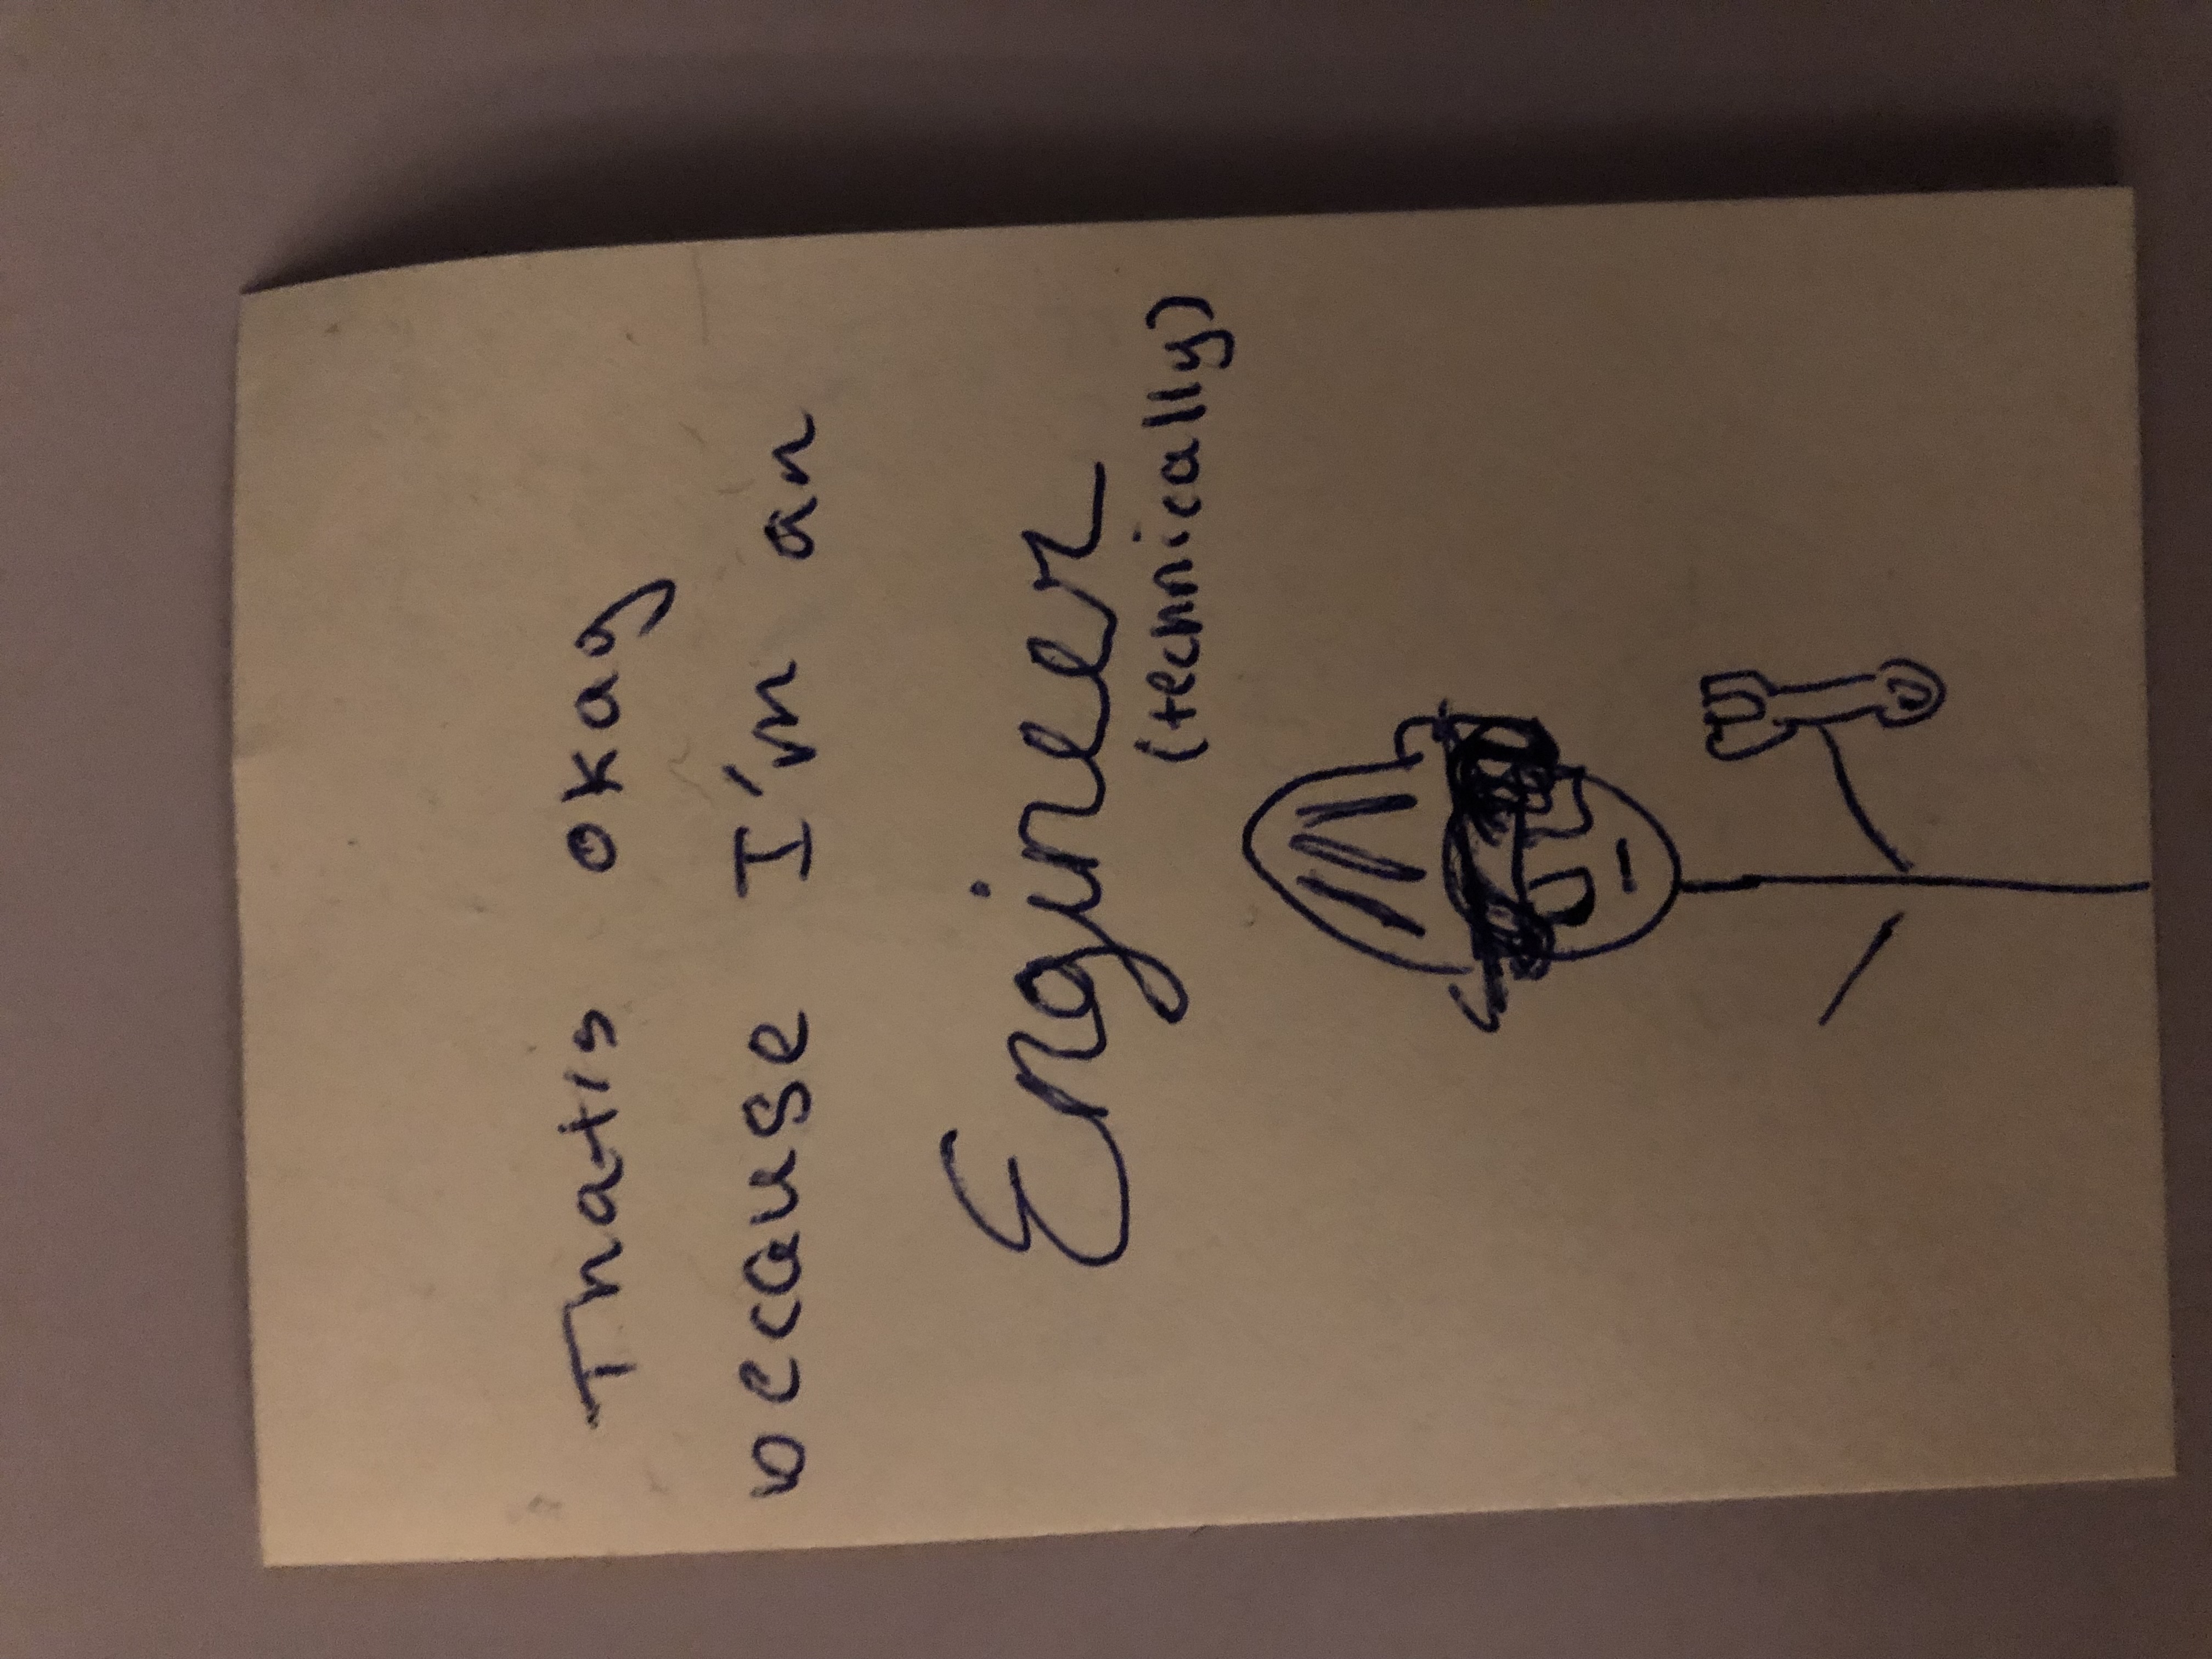 That's okay
because I'm an
Engineer
(technically)